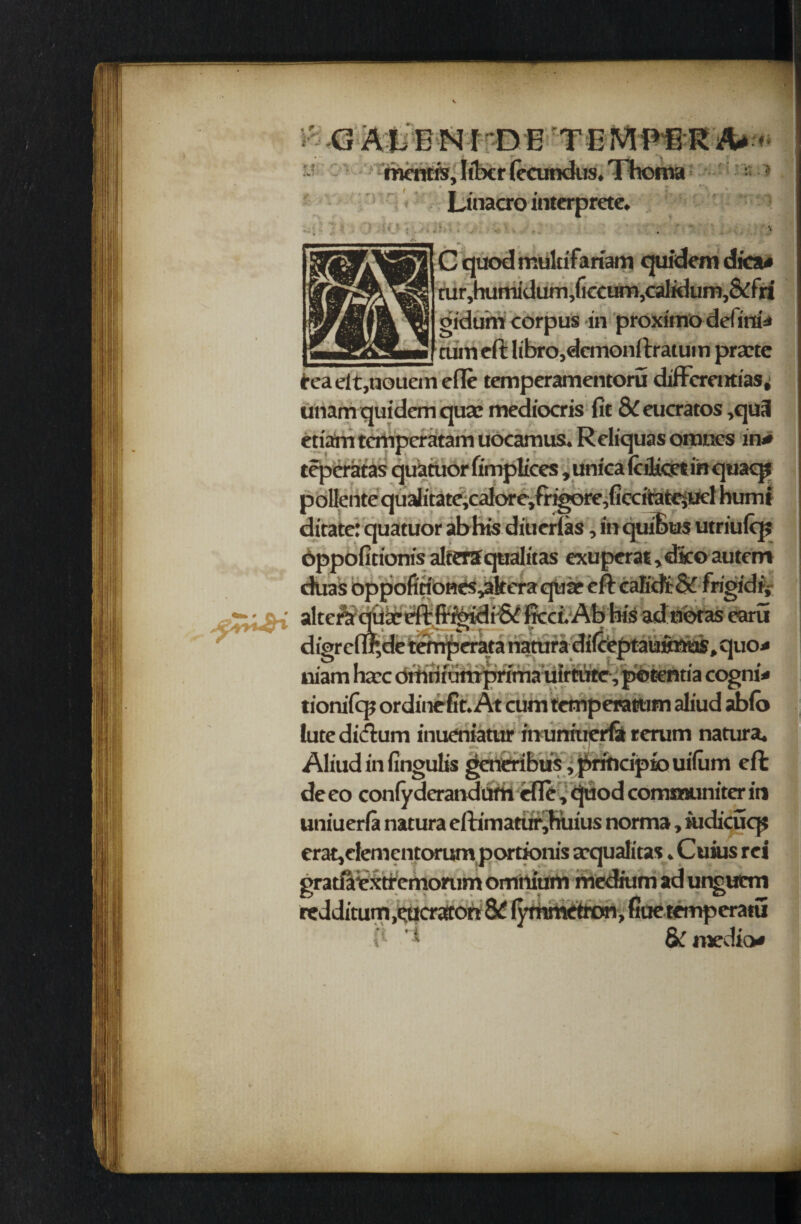 GALENI DE TEMPERA⸗
mentis, liber ſecundus. Thoma
Linacro interprete.
AC quod multifariam quidem dica⸗
tur,humidum,ſiccum,calidum,& fri
gidum corpus in proximo defini⸗
tum eſt libro,demonſtratum præte
rea eſt,nouem eſſe temperamentorū differentias,
unam quidem quæ mediocris ſit & eucratos ,quā
etiam temperatam uocamus. Reliquas omnes in⸗
tēperatas quatuor ſimplices , unica ſcilicet in quaqꝫ
pollente qualitate,calore,frigore,ſiccitate,uel humi
ditate: quatuor ab his diuerſas , in quibus utriuſqꝫ
oppoſitionis altera qualitas exuperat , dico autem
duas oppoſitiones,altera quæ eſt calidi & frigidi,
altera quæ eſt frigidi & ſicci. Ab his ad notas earū
digreſſi,de temperata natura diſceptauimus , quo⸗
niam hæc omnium prima uirtute , potentia cogni⸗
tioniſqꝫ ordine ſit. At cum temperatum aliud abſo
lute dictum inueniatur in uniuerſa rerum natura.
Aliud in ſingulis generibus , principio uiſum eſt
de eo conſyderandum eſſe , quod communiter in
uniuerſa natura eſtimatur,huius norma , iudicūqꝫ
erat,elementorum portionis æqualitas . Cuius rei
gratia extremorum omnium medium ad unguem
redditum ,eucraton & ſymmetron, ſiue temperatū
& medio⸗